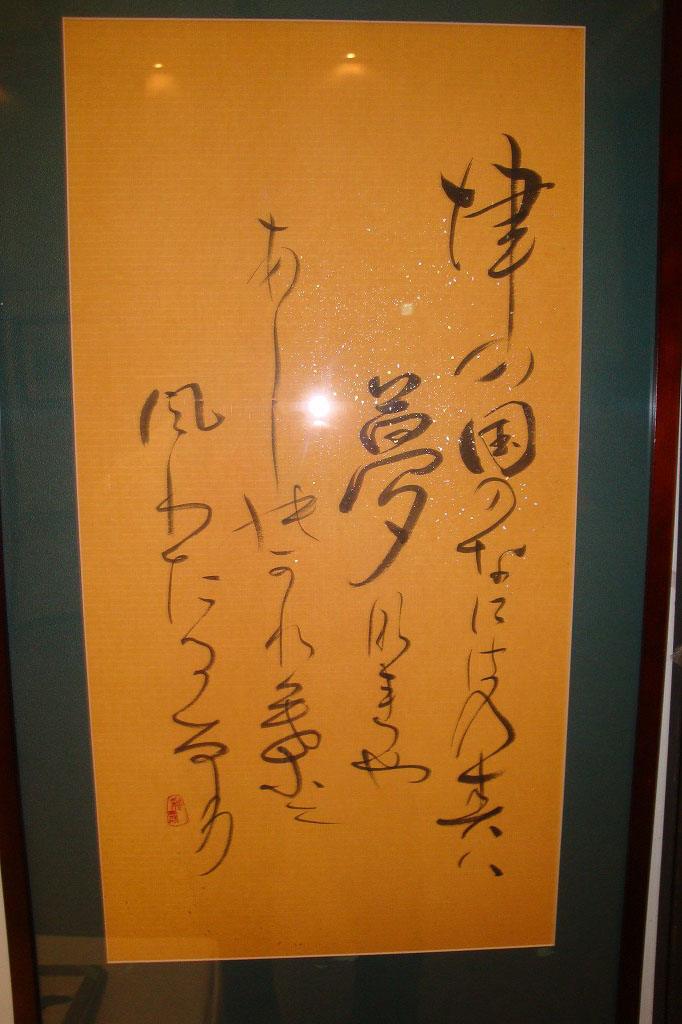 津の国のなにはの春は
夢なれや
あしのかれ葉に
風わたるなり